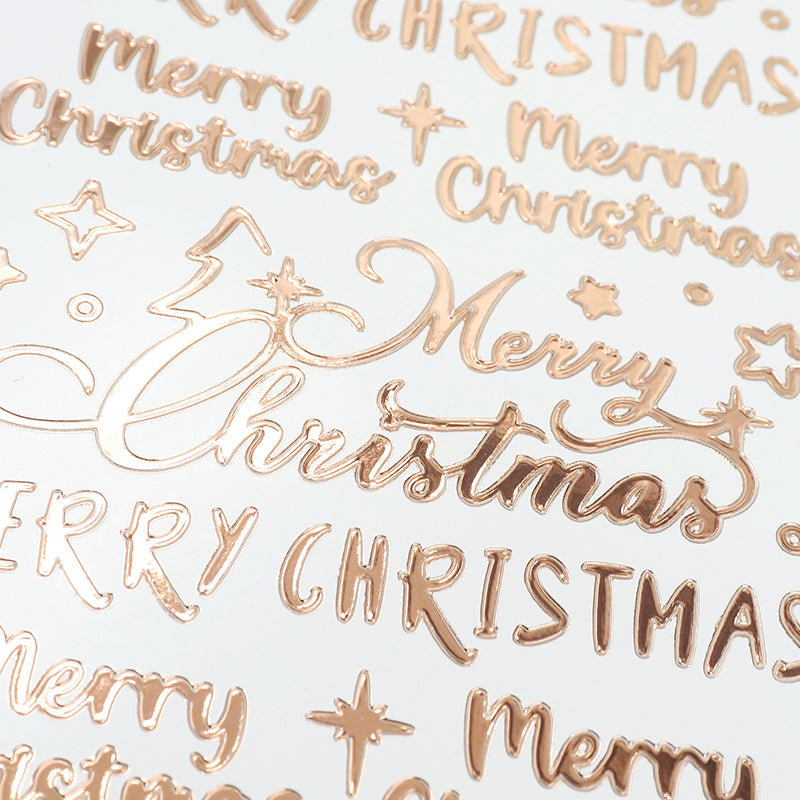 RRY CHRISTMAS
Merry
Christmas
Merry
Christmas
Merry
Christmas
ERRY CHRISTMAS
Merry
Christmas
Merry